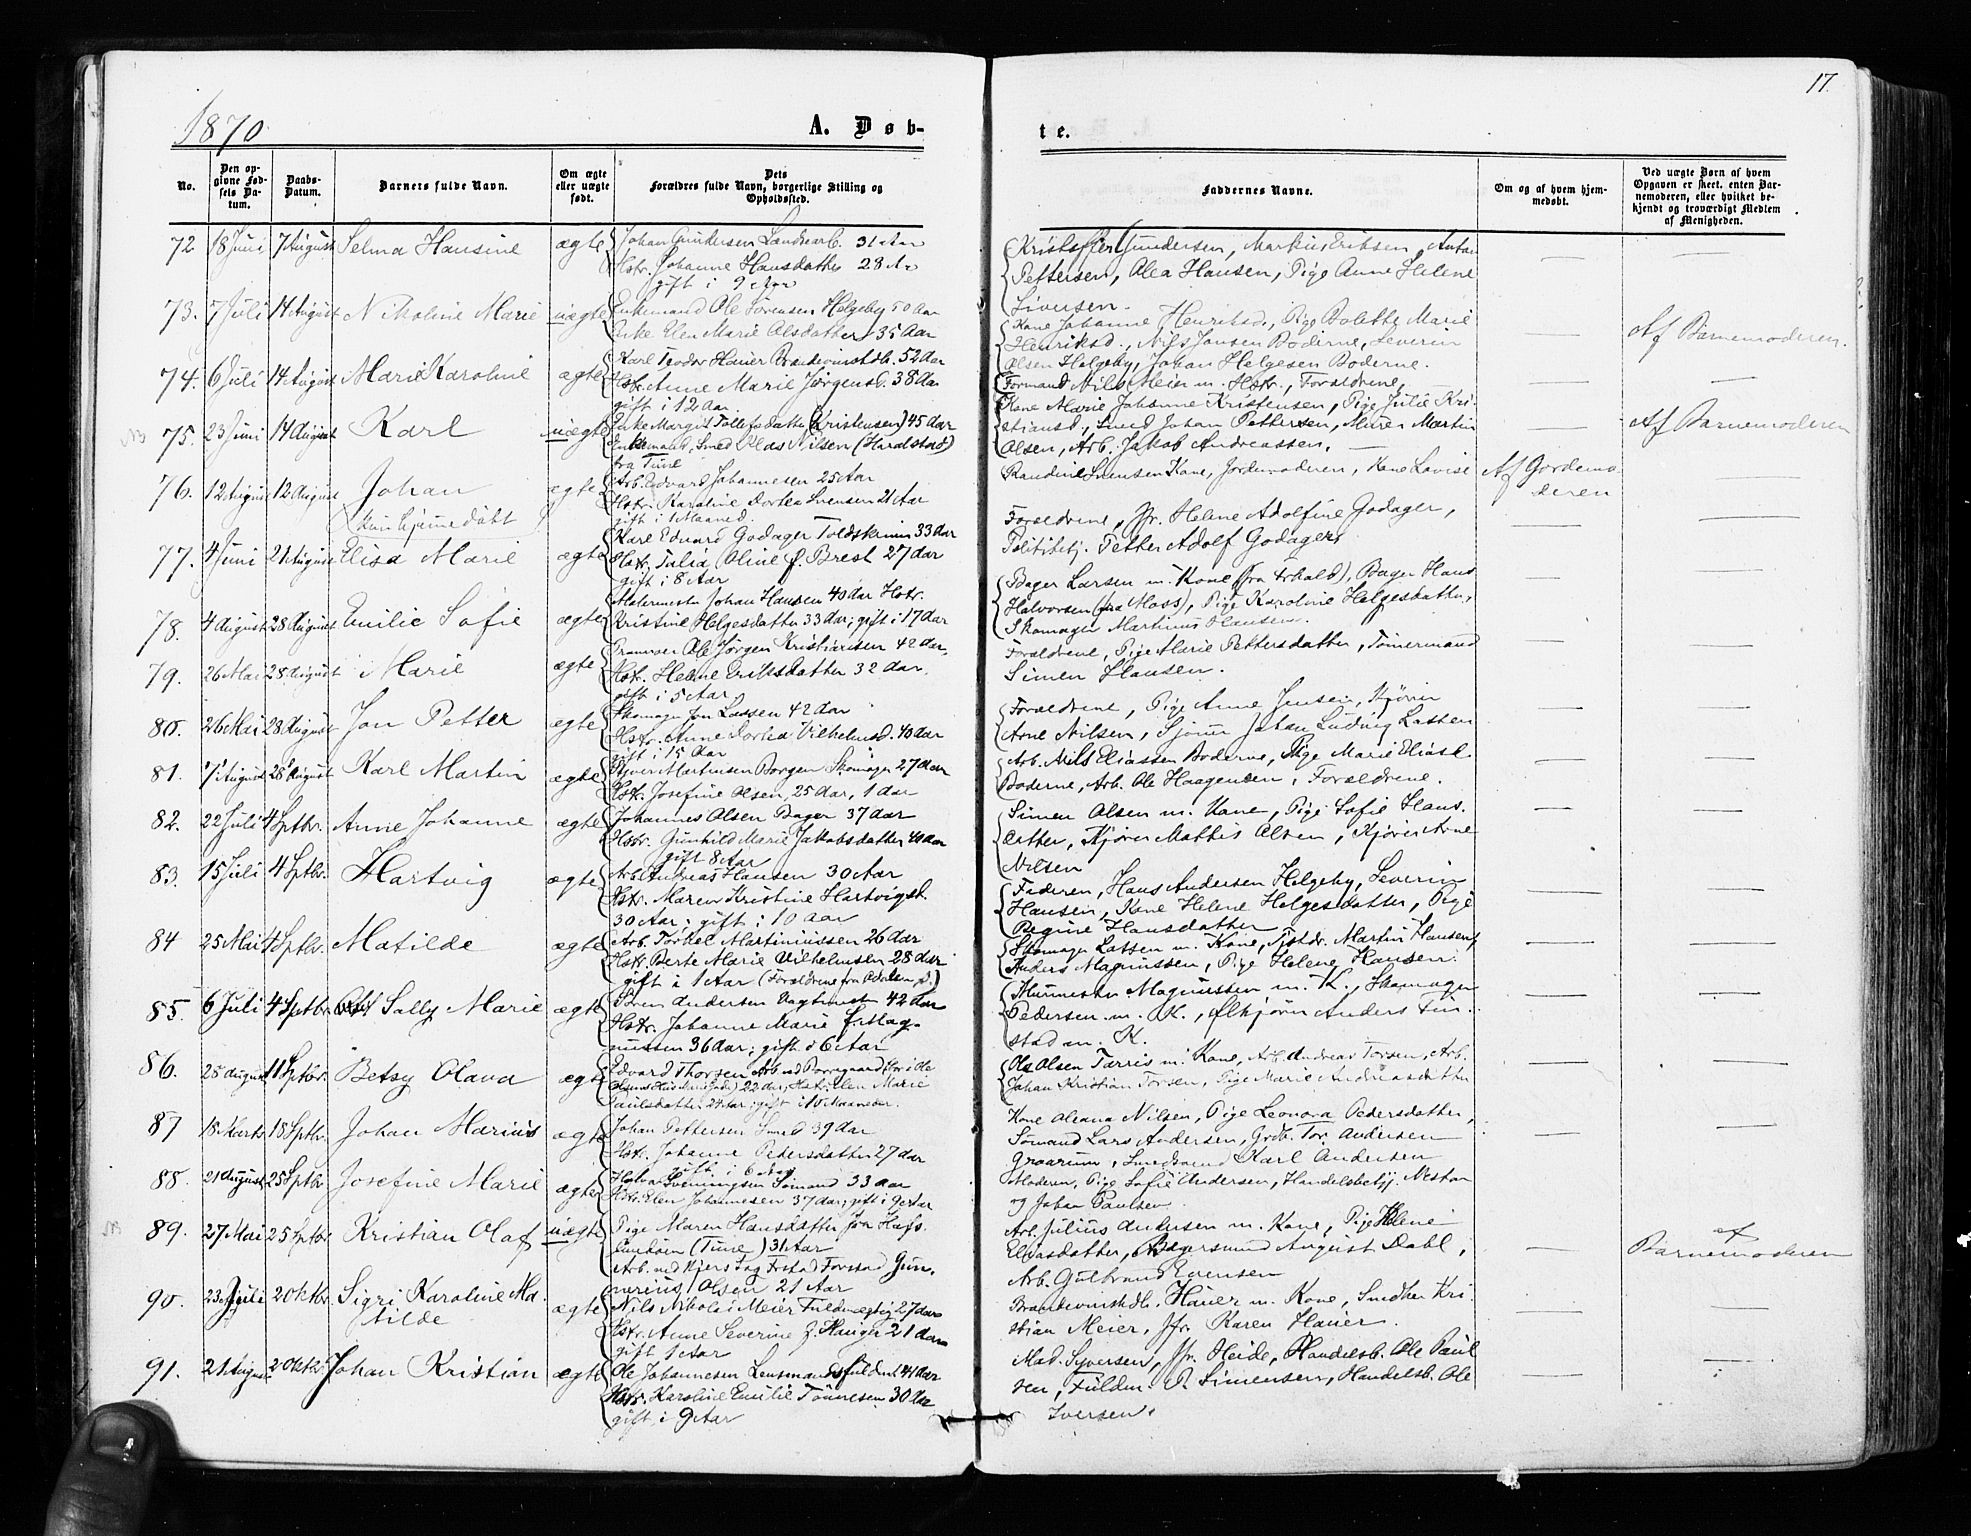 17.
1870.
A. Døb-
te.
No.
Den op-
givne Fød-
sels Da-
tum.
Daabs-
Datum.
Barnets fulde Navn.
Om ægte
eller uægte
født.
Dets
Forældres fulde Navn, borgerlige Stilling og
Opholdssted.
Faddernes Navne.
Om og af hvem hjem-
medøbt.
Ved uægte Børn af hvem
Opgaven er skeet, enten Bar-
nemoderen, eller hvilket be-
kjendt og troværdigt Medlem
af Menigheden.
72 18 Juni 7 August Selma Hansine ægte
Johan Gundersen 31 Aar
Hstr. Johanne Hansdatter 28 Ar
gift i 9 Aar
Kristoffer Gundersen, Markus Eriksen, Anton
Pettersen, Olea Hansen, Pige Anne Helene
Siversen.
73. 7 Juli 14 August Nikoline Marie uægte
Enkemand Ole Sørensen Helgeby 50 Aar
Enke Elen Marie Olsdatter 35 Aar
Kone Johanne Henriksd., Pige Bolette Marie
Henriksd., Nils Jansen Boderne, Severin
Olsen Helgeby, Johan Helgesen Boderne.
Af Barnemoderen.
74. 6 Juli 14 August Marie Karoline ægte
Karl Teodor Hauer 52 Aar
Hstr. Anne Marie Jørgensd. 38 Aar
gift i 12 Aar
Formand Nils Meier m. Hstr., Forældrene,
NB 75. 23 Juni 14 August Karl uægte
Enke Margit Tollefsdatter (Kristensen) 45 Aar
Enkemand, Smed Olas Nilsen (Haralstad)
fra Tune
Kone Marie Johanne Kristensen, Pige Julie Kri-
stiansd., Smed Johan Pettersen, Murer Martin
Olsen, Arb. Jakob Andreassen.
Af Barnemoderen
76. 12 August 12 August Johan ægte
(kun hjemmedøbt)
Arb. Edvard Johannesen 25 Aar
Hstr. Karoline Dortea Svensen 21 Aar
gift i 1 Maaned
Randine Svensen Kone, Jordemoderen, Kone Lovise
Af Jordemo-
deren
77. 4 Juni 21 August Elisa Marie ægte
Karl Edvard Godager Toldskriver 33 Aar
Hstr. Julia Oline f. Brest 27 Aar
gift i 8 Aar
Forældrene, Jfr. Helene Adolfine Godager,
Politibetj. Petter Adolf Godager,
78. 4 August 28 August Emilie Sofie ægte
Malermester Johan Hansen 40 Aar Hstr.
Kristine Helgesdatter 33 Aar; gift i 17 Aar
Bager Larsen m. Kone, Bager Hans
Halvorsen (fra Moss), Pige Karoline Helgesdatter,
Skomager Martinus Hansen.
79. 26 Mai 28 August Marie ægte
Ole Jørgen Kristiansen 42 Aar,
Hstr. Helene Eriksdatter 32 Aar,
gift i 5 Aar.
Forældrene, Pige Marie Pettersdatter, Tømermand
Simen Hansen.
80. 26 Mai 28 August Jon Petter ægte
Skomager Jon Lassen 42 Aar
Hstr. Anne Dortea Vilhelmsd. 40 Aar
gift i 15 Aar
Forældrene, Pige Anne Jensen, Kjører
Arne Nilsen, Sjøm Johan Ludvig Lassen
81. 7 August 28 August Karl Martin ægte
Syver Martinsen Borgen Skomager 27 Aar
Hstr. Josefine Olsen, 25 Aar, 1 Aar
Arb. Nils Eliassen Boderne, Pige Marie Eliasd.
Boderne, Arb. Ole Haagensen, Forældrene.
82. 22 Juli 4 Sptbr. Anne Johanne ægte
Johannes Olsen Bager 37 Aar
Hstr. Gunhild Marie Jakobsdatter 40 Aar
gift 8 Aar
Simen Olsen m. Kone, Pige Sofie Hans-
datter, Kjører Mattis Olsen, Kjører Arne
Nilsen
83. 15 Juli 4 Sptbr. Hartvig ægte
Arb. Andreas Hansen 30 Aar
Hstr. Maren Kristine Hartvigsd.
30 Aar; gift i 10 Aar
Faderen, Hans Andersen Helgeby, Severin
Hansen, Kone Helene Helgesdatter, Pige
Regine Hansdatter
84 25 Mai 4 Sptbr. Matilde ægte
Arb. Torkel Martiniussen 26 Aar
Hstr. Berte Marie Vilhelmsen 28 Aar
gift i 1 Aar
Skomager Lassen m. Kone, Tjstdr. Martin Hansen,
Anders Magnussen, Pige Helene Hansen.
85. 6 Juli 4 Sptbr. Sally Marie ægte
Søren Andersen 42 Aar
Hstr. Johanne Marie f. Mag-
nussen 36 Aar; gift i 6 Aar
Murmester Magnussen m. K., Skomager
Pedersen m. K., Ølkjører Anders Fin-
stad m. K.
86. 25 August 11 Sptbr. Betsy Olava ægte
Edvard Thorsen Arb. ved Borregaard
22 Aar; Hstr. Elen Marie
Paulsdatter 24 Aar; gift i 10 Maaneder.
Ole Olsen Tarris m. Kone, Arb. Andreas Torsen, Arb.
Johan Kristian Torsen, Pige Marie Andreasdatter
87 18 Marts 18 Sptbr. Johan Marius ægte
Johan Pettersen Smed 39 Aar
Hstr. Johanne Pedersdatter 27 Aar
gift i 6 Aar
Kone Oleana Nilsen, Pige Leonora Pedersdatter,
Sømand Lars Andersen, Grdb. Tor. Andersen
Graarum, Smedsvend Karl Andersen
88. 21 August 25 Sptbr. Josefine Marie ægte
Halvor Svenningsen Sømand 33 Aar
Hstr. Elen Johannesen 37 Aar; gift i 9 Aar
Moderen, Pige Sofie Andersen, Handelsbetj. Neston
og Johan Paulsen
NB 89. 27 Mai 25 Sptbr. Kristian Olaf uægte
Pige Maren Hansdatter fra Hafs-
lundsøen (Tune) 31 Aar
Gun-
nerius Olsen 21 Aar
Arb. Julius Andersen m. Kone, Pige Helene
Eliasdatter, August Dahl,
Arb. Gulbrand Evensen
af
Barnemoderen
90. 23 Juli 2 Oktbr. Sigri Karoline Ma-
tilde ægte
Nils Nikolai Meier Fuldmægtig 27 Aar
Hstr. Anne Severine f. Hauger 21 Aar
gift 1 Aar
Hauer m. Kone, Snedker Kri-
stian Meier, Jfr. Karen Hauer.
91. 21 August 2 Oktbr. Johan Kristian ægte
Ole Johannesen Lensmandsfuldm. 41 Aar
Hstr. Karoline Emilie Tønnesen 30 Aar
gift i 9 Aar
Mad. Syversen, Jfr. Heide, Handelsb. Ole Paul-
sen, Fuldm. P. Simensen, Handelsb. Ole
Iversen.